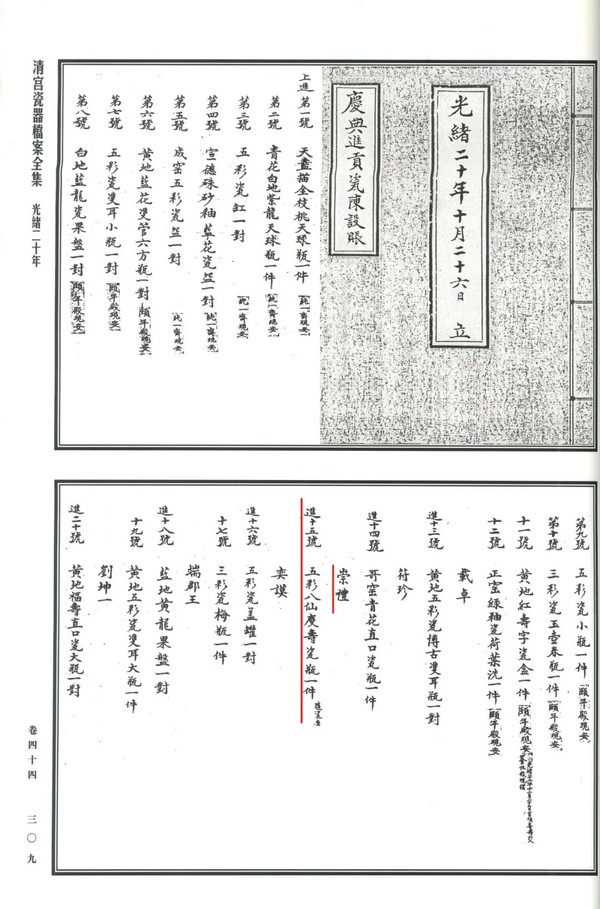 清宮瓷器檔案全集 光緒二十年
光緒二十年十月二十六日 立
慶典進貢瓷陳設賬
上進 第一號 天藍描金枝桃天球瓶一件
第二號 青花白地紫龍天球瓶一件
第三號 五彩瓷缸一對
第四號 宣德硃砂釉藍花瓷盌一對
第五號 成窑五彩瓷盌一對
第六號 黃地藍花燙管六方瓶一對 頤年殿現安
第七號 五彩瓷雙耳小瓶一對 頤年殿現安
第八號 白地藍龍瓷果盤一對 頤年殿現安
第九號 五彩瓷小瓶一件 頤年殿現安
第十號 三彩瓷玉壺春瓶一件 頤年殿現安
十一號 黃地紅壽字瓷盒一件 頤年殿現安
十二號 正窑綠釉瓷荷葉洗一件 頤年殿現安
載卓
進十三號 黃地五彩瓷博古雙耳瓶一對
符珍
進十四號 哥窑青花直口瓷瓶一件
崇禮
進十五號 五彩八仙慶壽瓷瓶一件
奕謨
進十六號 五彩瓷蓋罐一對
十七號 三彩瓷梅瓶一件
端郡王
進十八號 藍地黃龍果盤一對
十九號 黃地五彩瓷雙耳大瓶一件
劉坤一
進二十號 黃地福壽直口瓷大瓶一對
卷四十四 三〇九